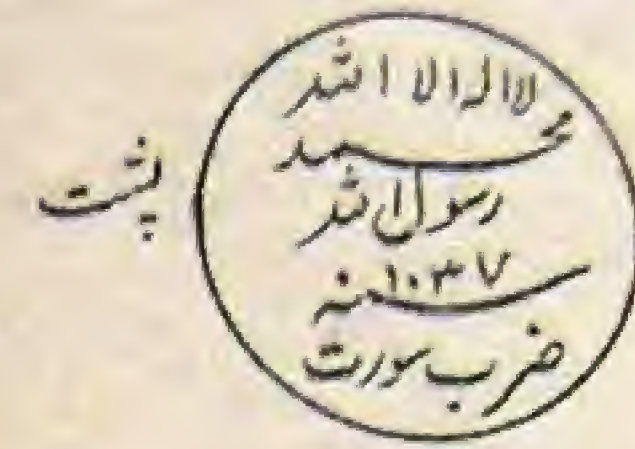 لا اله الا الله
محمد
رسول الله
سنه ۱۰۳۷
ضرب سورت
پشت